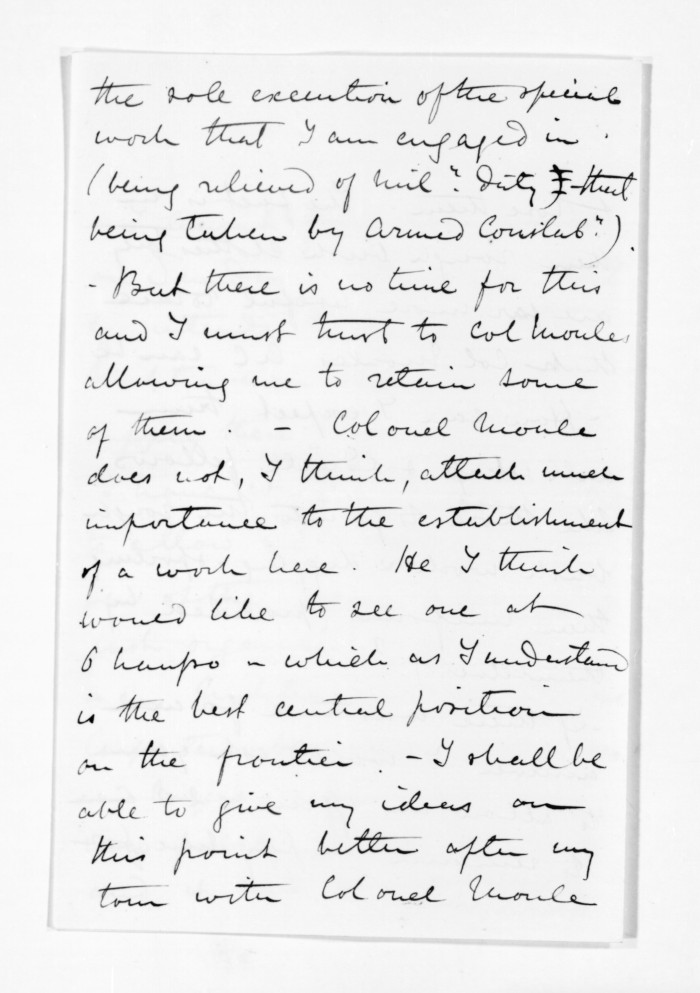 the sole execution of the special
work that I am engaged in.
(being relieved of mily. Duty & that
being taken by Armed Constaby.).
- But there is no time for this
and I must trust to Col Moules
allowing me to retain some
of them. - Colonel Moule
does not, I think, attach much
importance to the establishment
of a work here. He I think
would like to see one at
Ohaupo - which as I understand
is the best central position
on the frontier. - I shall be
able to give my ideas on
this point better after my
tour with Colonel Moule